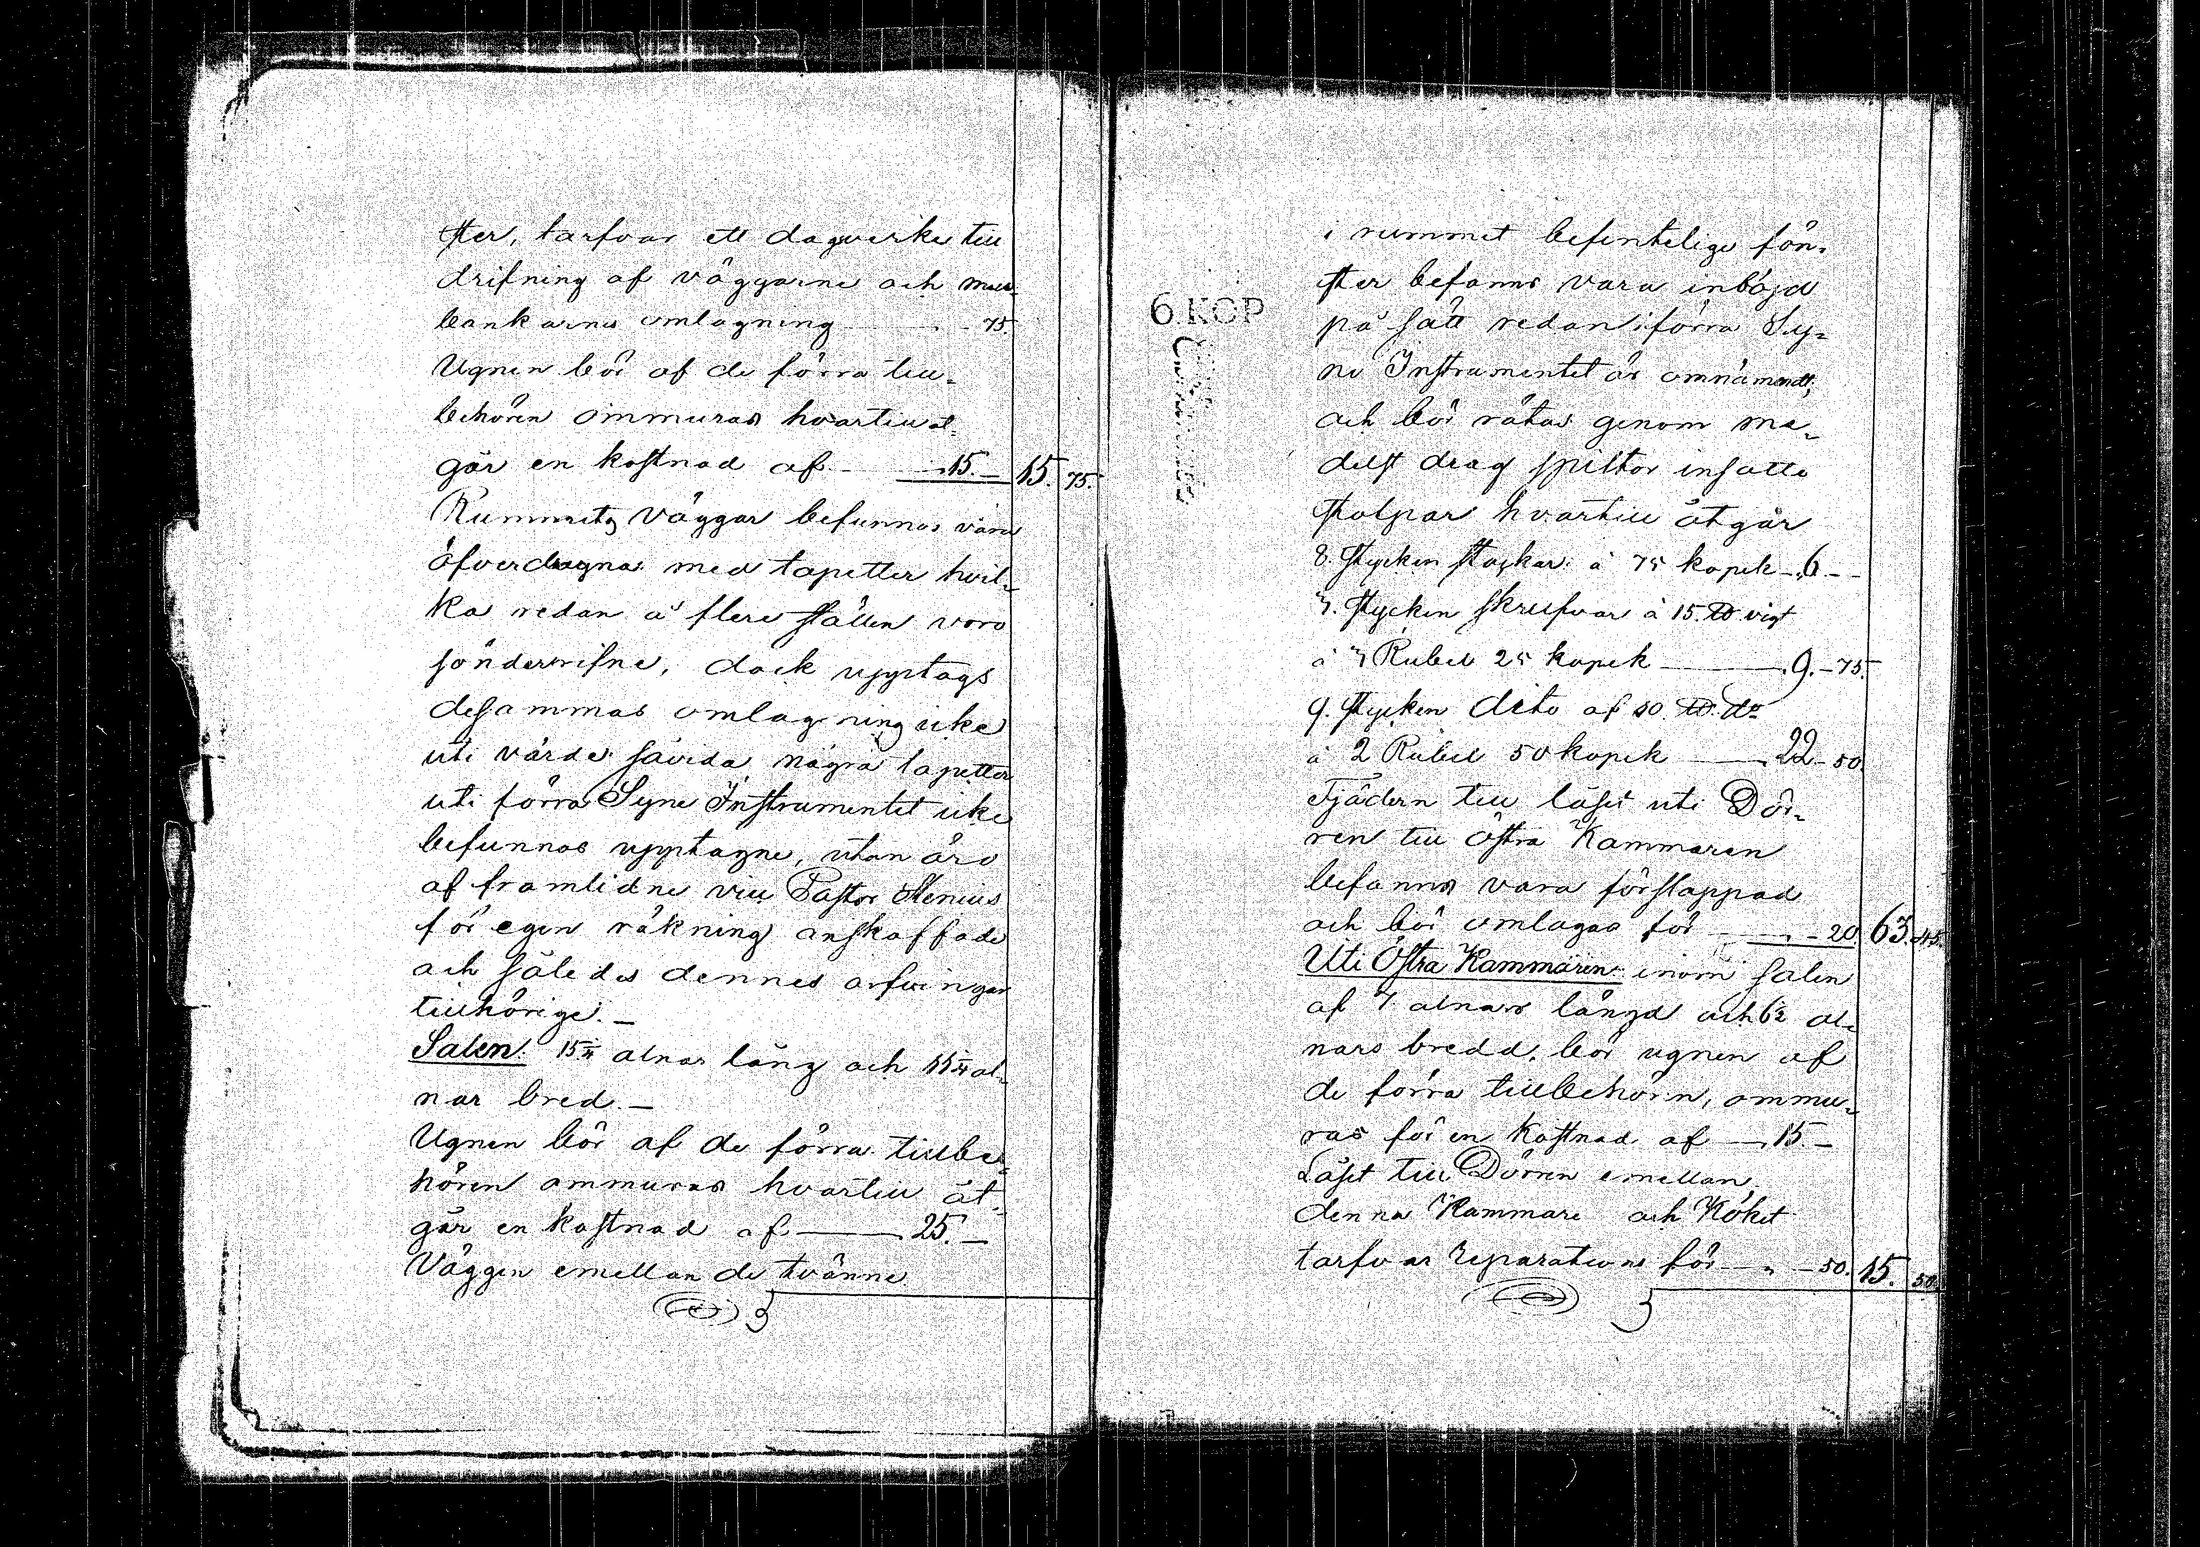 ster, tarfvar ett dagsverke till
drifning af väggarne och mull-
bänkarnes omlagning — 75.
Ugnen bör af de förra till-
behören ommuras hvartill åt-
går en kostnad af — 15. — 15. 75.
Rummets väggar befunnos vara
öfverdragna med tapetter hvil-
ka redan å flere ställen voro
sönderrifne, dock upptogs
desammas omlagning icke
uti värde såvida några tapetter
uti förra Syne Instrumentet icke
befunnos upptagne, utan äro
af framlidne vice Pastor Stenius
för egen räkning anskaffade
och således dennes arfvingar
tillhörige. —
Salen. alnar lång och al-
nar bred. —
Ugnen bör af de förra tillbe-
hören ommuras hvartill åt-
går en kostnad af — 25. —
Väggen emellan de tvänne
6 KOP
i rummet befinteliga fön-
ster befanns vara inböjd
på sätt redan i förra Sy-
ne Instrumentet är omnämndt,
och bör rätas genom me-
delst drag spiltor insatte
stolpar hvartill åtgår
8. stycken stockar à 75 kopek — 6 —
3. stycken skrufvar à 15. ℔ vigt
à 3 Rubel 25 kopek — 9. — 75.
9. stycken dito af 10. ℔ do
à 2 Rubel 50 kopek — 22 — 50.
Fjädern till låset uti Dör-
ren till Östra Kammaren
befanns vara förslappad
och bör omlagas för — 20. 63. 45.
Uti Östra Kammaren inom salen
af 7 alnars längd och 6½ al-
nars bredd, bör ugnen af
de förra tillbehören, ommu-
ras för en kostnad af — 15. —
Låset till Dörren emellan
denna Kammare och Köket
tarfvar reparations för — 50. 15. 50.